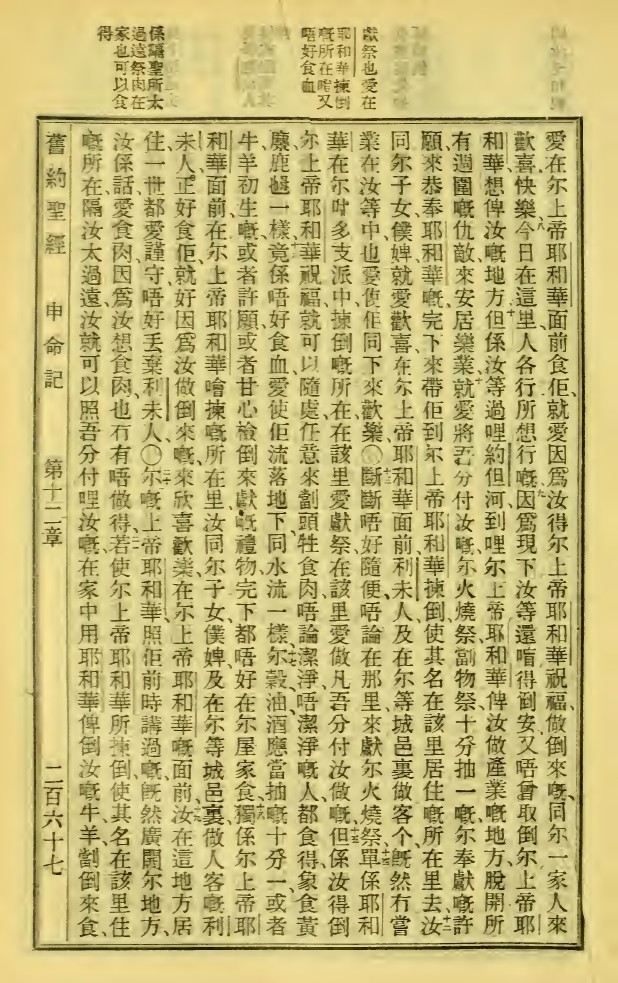 獻祭也愛在
耶和華揀倒
嘅所在啱又
唔好食血
係隔聖所太
過遠祭肉在
家也可以食
得
愛在尔上帝耶和華面前食佢、就愛因爲汝得尔上帝耶和華祝福、做倒來嘅、同尔一家人來
歡喜快樂、今日在這里人各行所想行嘅、因爲現下汝等還唔得到安、又唔曾取倒尔上帝耶
和華想俾汝嘅地方、但係汝等過哩約但河、到哩尔上帝耶和華俾汝做產業嘅地方、脫開所
有週圍嘅仇敵、來安居樂業、就愛將吾分付汝嘅、尔火燒祭、副物祭、十分抽一嘅、尔奉獻嘅、許
願來恭奉耶和華嘅、完下來帶佢到尔上帝耶和華揀倒、使其名在該里居住嘅所在里去、汝
同尔子女僕婢、就愛歡喜在尔上帝耶和華面前、利未人及在尔等城邑裏做客个、旣然冇當
業在汝等中也、愛隽佢同下來歡樂、〇斷斷唔好隨便、唔論在那里來獻尔火燒祭、單係耶和
華在尔咁多支派中揀倒嘅所在、在該里愛獻祭、在該里愛做凡吾分付汝做嘅、但係汝得倒
尔上帝耶和華祝福、就可以隨處任意來劏頭牲食肉、唔論潔淨唔潔淨嘅人、都食得、象食黃
麖鹿一樣、竟係唔好食血、愛使佢流落地下、同水流一樣、尔穀油酒應當抽嘅十分一、或者
牛羊初生嘅、或者許願、或者甘心檢倒來獻嘅禮物、完下都唔好在尔屋家食、獨係尔上帝耶
和華面前、在尔上帝耶和華噲揀嘅所在里、汝同尔子女僕婢、及在尔等城邑裏做人客嘅利
未人、正好食佢、就好因爲汝做倒來嘅、來欣喜歡樂在尔上帝耶和華嘅面前、汝在這地方居
住一世、都愛謹守唔好丟棄利未人、〇尔嘅上帝耶和華照佢前時講過嘅、旣然廣闊尔地方、
汝係話愛食肉、因爲汝想食肉也、冇有唔做得、若使尔上帝耶和華所揀倒、使其名在該里住
嘅所在、隔汝太過遠、汝就可以照吾分付哩汝嘅、在家中用耶和華俾倒汝嘅牛羊、劏倒來食、
舊約聖經 申命記 第十二章 二百六十七